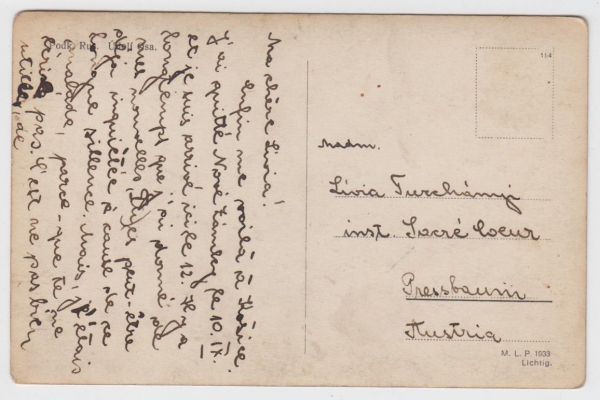 Podk. Rus. Údolí Usa.
114
Ma chère Livia!
Enfin me voilà à Košice.
J'ai quitté Nové Zámky le 10. IX.
et je suis arrivé ici le 12. Il y a
longtemps que j'ai donné de
mes nouselles, tu es peut-être
déjà inquiétée à cause de ce
longue sillence. Mais, j'étais
malade, parce-que je ne
écrivis pas. C'est ne pas bien
utile, de
Madm.
Livia Turchányi
inst. Sacré Coeur
Pressbaum
Austria
M. L. P. 1933
Lichtig.